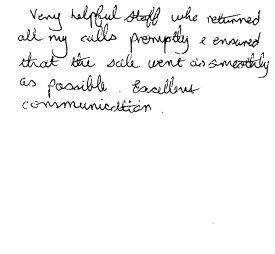 Very helpful staff who returned
all my calls promptly & ensured
that the sale went as smoothly
as possible. Excellent
communication.